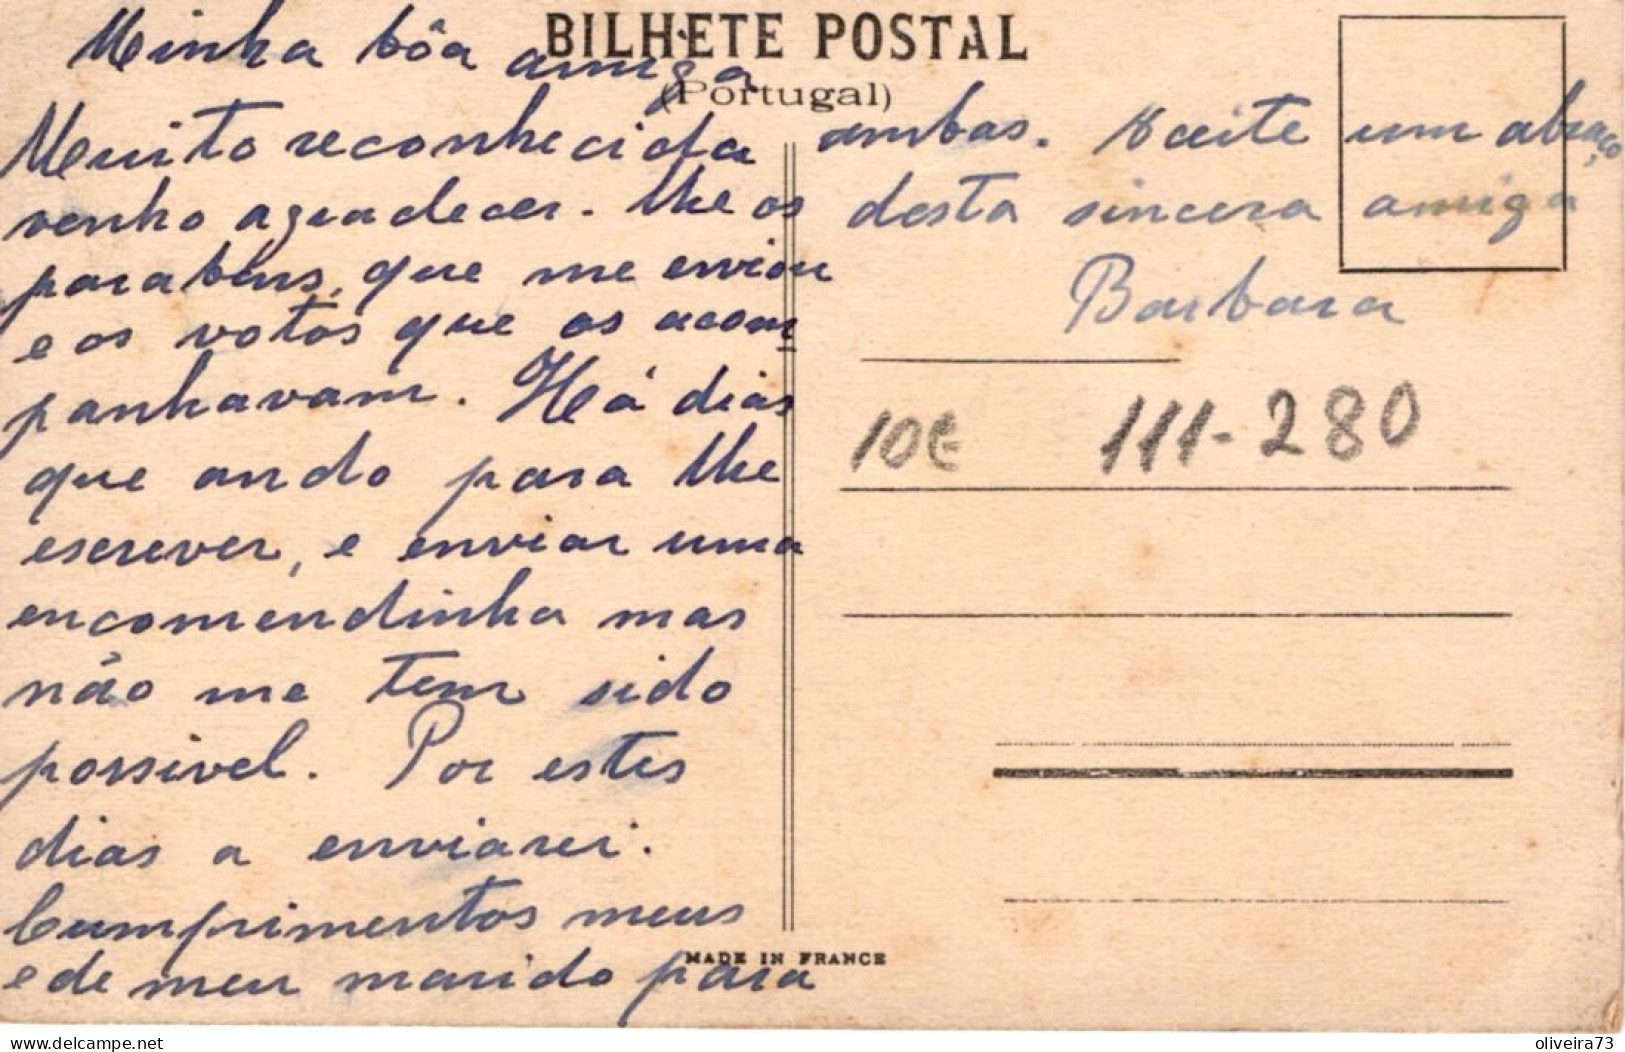 BILHETE POSTAL
(Portugal)
Minha bôa amiga
Muito reconhecida
venho agradecer-lhe os
parabens, que me enviou
e os votos que os acom
panhavam. Há dias
que ando para lhe
escrever, e enviar uma
encomendinha mas
não me tem sido
possivel. Por estes
dias a enviarei.
Cumprimentos meus
e de meu marido para
ambas. Aceite um abraço
desta sincera amiga
Barbara
10€ 111-280
MADE IN FRANCE
oliveira73